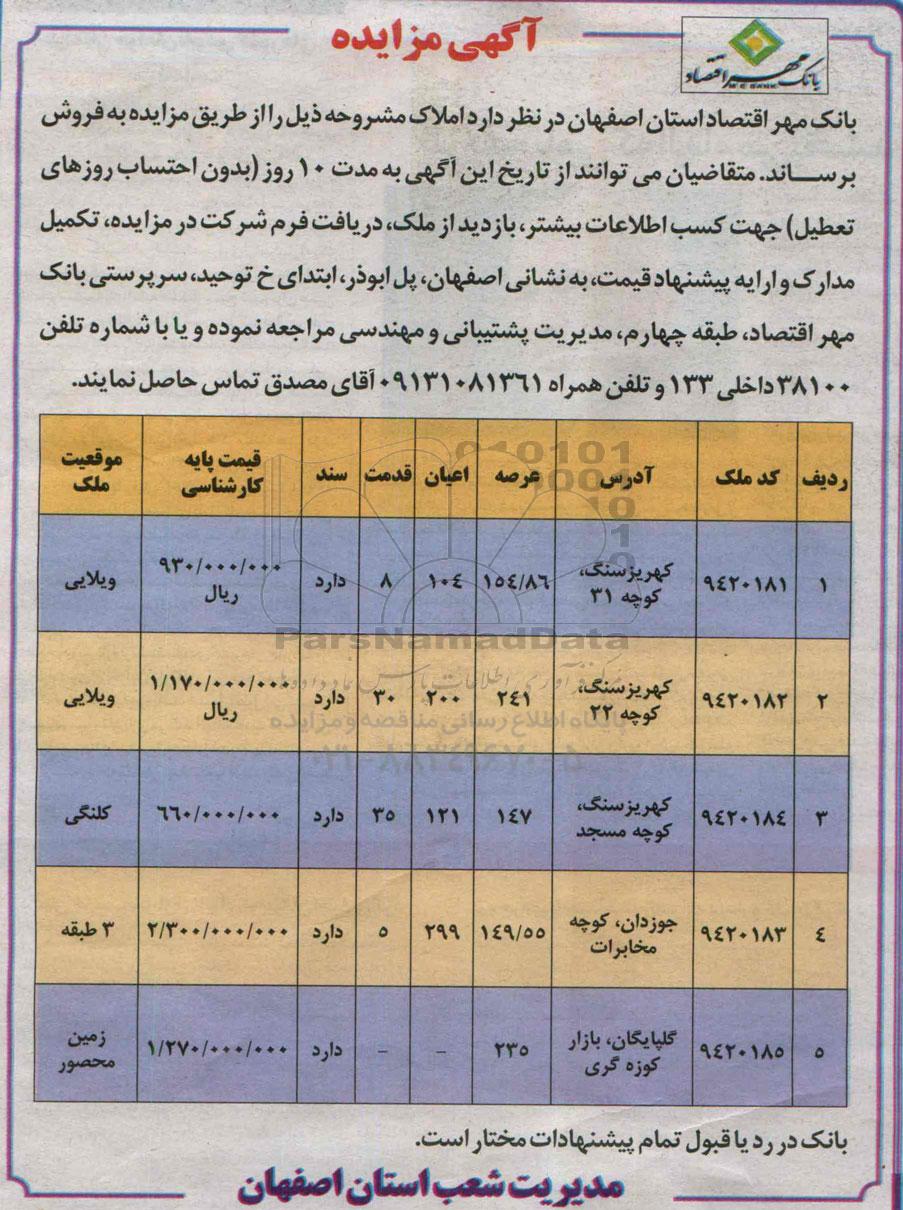 آگهی مزایده
بانک مهر اقتصاد
M.E BANK
بانک مهر اقتصاد استان اصفهان در نظر دارد املاک مشروحه ذیل را از طریق مزایده به فروش
برساند. متقاضیان می توانند از تاریخ این آگهی به مدت ۱۰ روز (بدون احتساب روزهای
تعطیل) جهت کسب اطلاعات بیشتر، بازدید از ملک، دریافت فرم شرکت در مزایده، تکمیل
مدارک و ارایه پیشنهاد قیمت، به نشانی اصفهان، پل ابوذر، ابتدای خ توحید، سرپرستی بانک
مهر اقتصاد، طبقه چهارم، مدیریت پشتیبانی و مهندسی مراجعه نموده و یا با شماره تلفن
۳۸۱۰۰ داخلی ۱۳۳ و تلفن همراه ۰۹۱۳۱۰۸۱۳۶۱ آقای مصدق تماس حاصل نمایند.
ردیف کد ملک آدرس عرصه اعیان قدمت سند قیمت پایه کارشناسی موقعیت ملک
۱ ۹۴۲۰۱۸۱ کهریزسنگ، کوچه ۳۱ ۱۵۴/۸۶ ۱۰۴ ۸ دارد ۹۳۰/۰۰۰/۰۰۰ ریال ویلایی
۲ ۹۴۲۰۱۸۲ کهریزسنگ، کوچه ۲۲ ۲۴۱ ۲۰۰ ۳۰ دارد ۱/۱۷۰/۰۰۰/۰۰۰ ریال ویلایی
۳ ۹۴۲۰۱۸۴ کهریزسنگ، کوچه مسجد ۱۴۷ ۱۲۱ ۳۵ دارد ۶۶۰/۰۰۰/۰۰۰ کلنگی
۴ ۹۴۲۰۱۸۳ جوزدان، کوچه مخابرات ۱۴۹/۵۵ ۲۹۹ ۵ دارد ۲/۳۰۰/۰۰۰/۰۰۰ ۳ طبقه
۵ ۹۴۲۰۱۸۵ گلپایگان، بازار کوزه گری ۲۳۵ – – دارد ۱/۲۷۰/۰۰۰/۰۰۰ زمین محصور
ParsNamadData
پایگاه اطلاع رسانی مناقصه و مزایده
۰۲۱-۸۸۳۴۹۶۷۰-۵
بانک در رد یا قبول تمام پیشنهادات مختار است.
مدیریت شعب استان اصفهان